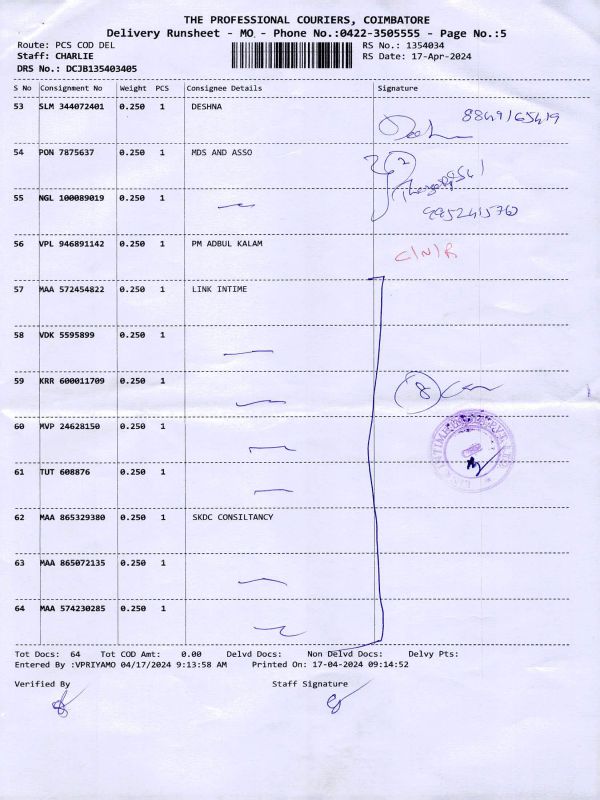 THE PROFESSIONAL COURIERS, COIMBATORE
Delivery Runsheet - MO - Phone No.:0422-3505555 - Page No.:5
Route: PCS COD DEL RS No.: 1354034
Staff: CHARLIE RS Date: 17-Apr-2024
DRS No.: DCJB135403405
S No Consignment No Weight PCS Consignee Details Signature
53 SLM 344072401 0.250 1 DESHNA
54 PON 7875637 0.250 1 MDS AND ASSO
55 NGL 100089019 0.250 1
9952415760
56 VPL 946891142 0.250 1 PM ADBUL KALAM C/N/R
57 MAA 572454822 0.250 1 LINK INTIME
58 VDK 5595899 0.250 1
59 KRR 600011709 0.250 1 8
60 MVP 24628150 0.250 1
61 TUT 608876 0.250 1
62 MAA 865329380 0.250 1 SKDC CONSILTANCY
63 MAA 865072135 0.250 1
64 MAA 574230285 0.250 1
Tot Docs: 64 Tot COD Amt: 0.00 Delvd Docs: Non Delvd Docs: Delvy Pts:
Entered By :VPRIYAMO 04/17/2024 9:13:58 AM Printed On: 17-04-2024 09:14:52
Verified By Staff Signature